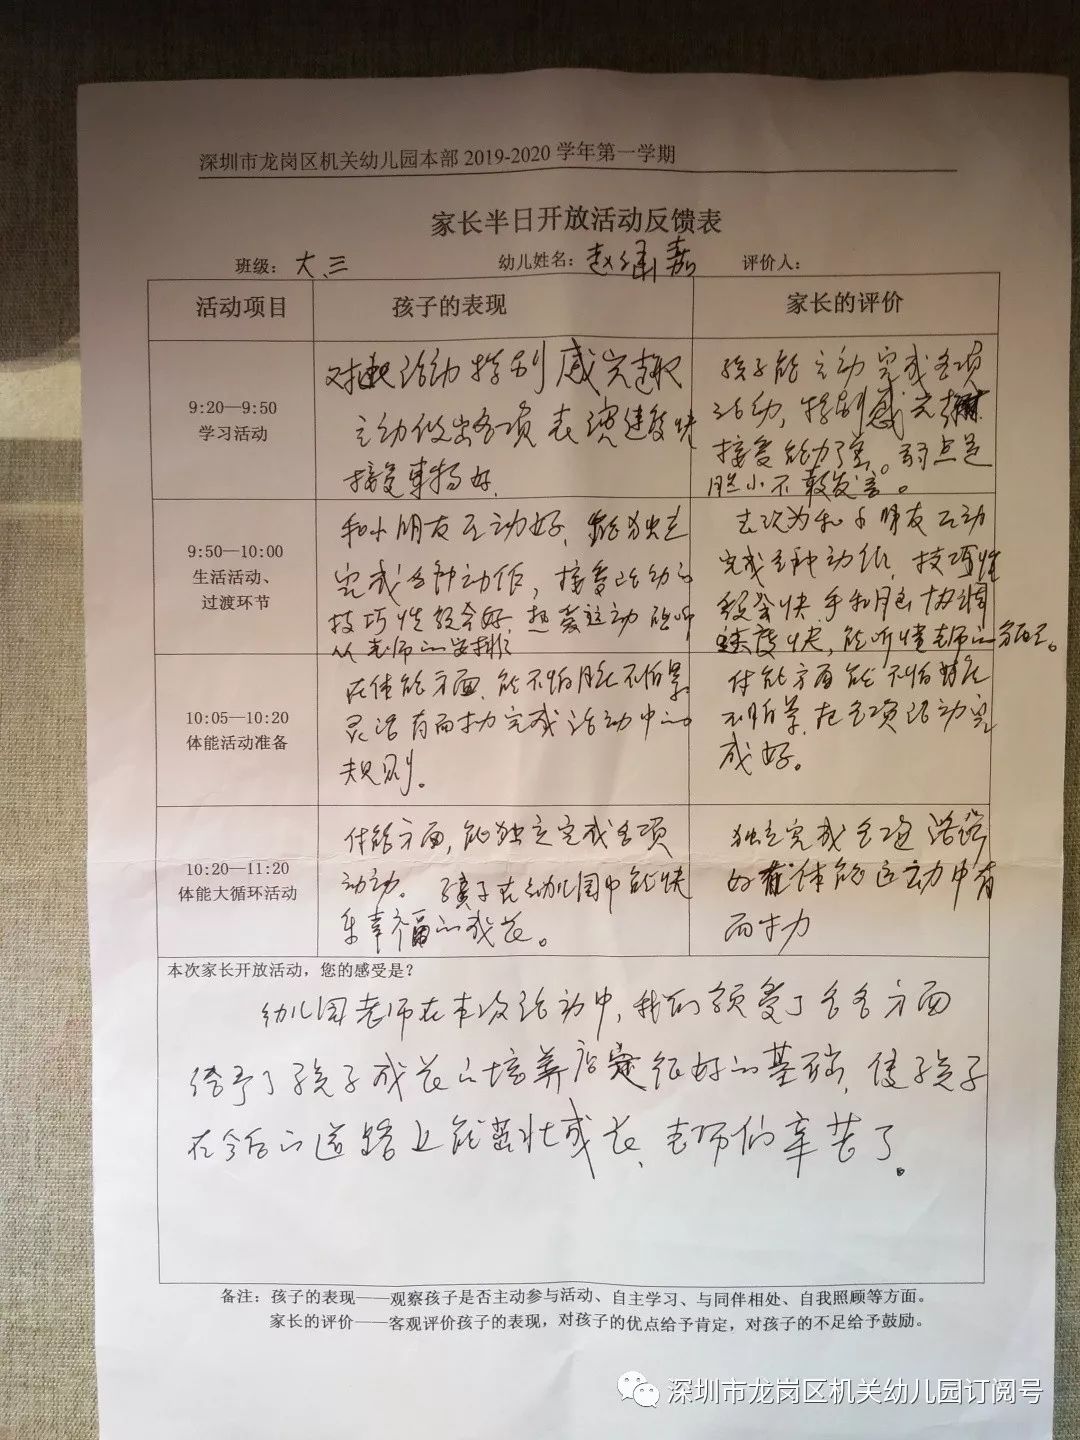 深圳市龙岗区机关幼儿园本部 2019-2020 学年第一学期
家长半日开放活动反馈表
班级：大三 幼儿姓名：赵 嘉 评价人：
活动项目 孩子的表现 家长的评价
9:20—9:50
学习活动
对 活动特别感兴趣
主动做出各项表演速度快
接受事物好.
孩子能主动完成各项
活动，特别感兴
接受能力强。弱点是
胆小不敢发言。
9:50—10:00
生活活动、
过渡环节
和小朋友互动好，能独立
完成各种动作，接受运动的
技巧性较会好，热爱运动能听
从老师的安排
去次为和小朋友互动
完成各种动作，技巧性
较会快，手和眼协调
速度快，能听懂老师的
10:05—10:20
体能活动准备
在体能方面，能不怕脏不怕累
灵活有耐力完成活动中的
规则。
体能方面能不怕脏
不怕累，在各项活动完
成好。
10:20—11:20
体能大循环活动
体能方面，能独立完成各项
动动。孩子在幼儿园中能快
乐幸福的成长。
独立完成各项活
的在体能运动中有
耐力
本次家长开放活动，您的感受是？
幼儿园老师在本次活动中，我们领受了各各方面
给予了孩子成长的培养 很好的基础，使孩子
在今后的道路上能茁壮成长，老师们辛苦了。
备注：孩子的表现——观察孩子是否主动参与活动、自主学习、与同伴相处、自我照顾等方面。
家长的评价——客观评价孩子的表现，对孩子的优点给予肯定，对孩子的不足给予鼓励。
深圳市龙岗区机关幼儿园订阅号